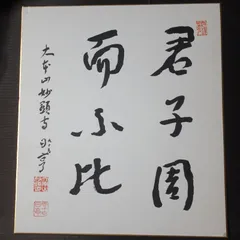 君子周
而不比
大本山妙顕寺